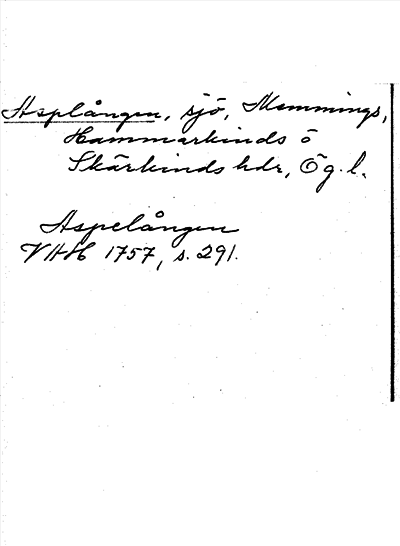 Asplången, sjö, Memmings,
Hammarkinds o
Skärkinds hdr, Ög. l.
Aspelången
VHH 1757, s. 291.